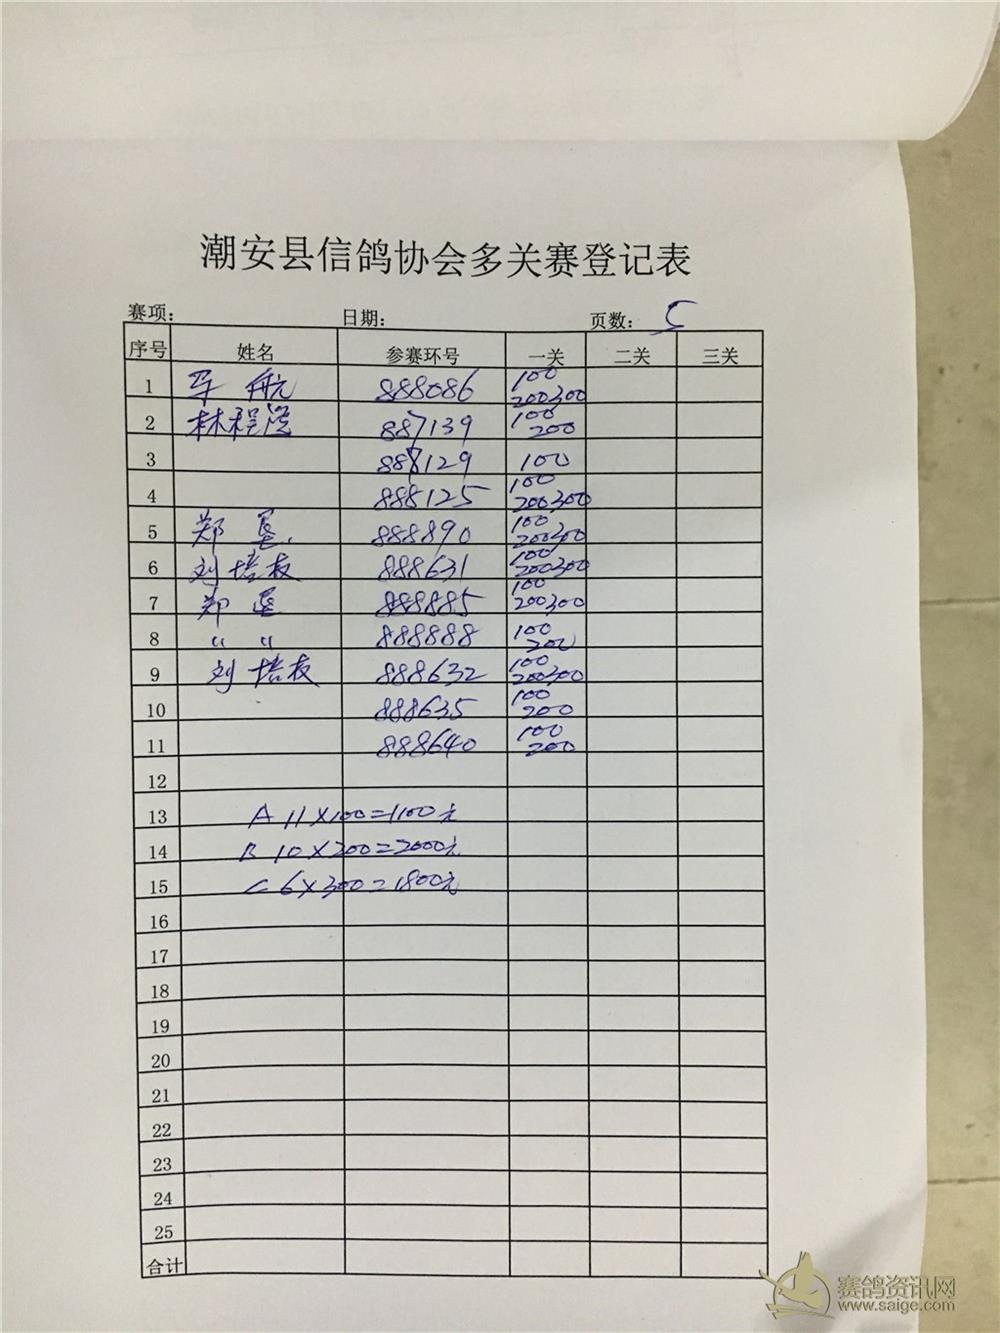 潮安县信鸽协会多关赛登记表
赛项: 日期: 页数: 5
序号 姓名 参赛环号 一关 二关 三关
1 航 888086 100 200 300
2 林程 887139 100 200
3 888129 100
4 888125 100 200 300
5 郑 888890 100 200 300
6 刘培 888631 100 200 300
7 郑 888885 100 200 300
8 〃 〃 888888 100 200
9 刘培 888632 100 200 300
10 888635 100 200
11 888640 100 200
12
13 A 11×100=1100元
14 B 10×200=2000元
15 C 6×300=1800元
16
17
18
19
20
21
22
23
24
25
合计
赛鸽资讯网
www.saige.com